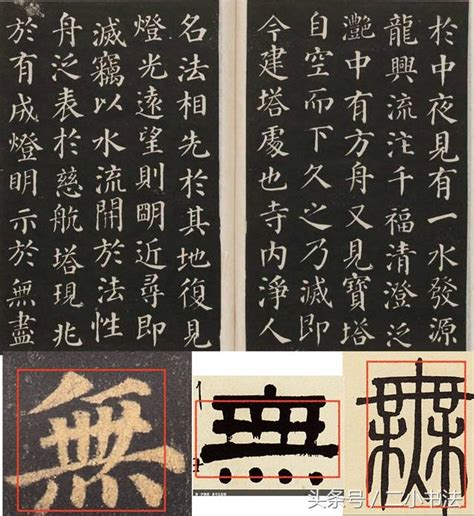 於中夜見有一水發源
龍興流注千福清澄泛
灩中有方舟又見寶塔
自空而下久之乃滅即
今建塔處也寺内淨人
名法相先於其地復見
燈光遠望則明近尋即
滅竊以水流開於法性
舟泛表於慈航塔現兆
於有成燈明示於無盡
無
無
無
头条号/二小书法